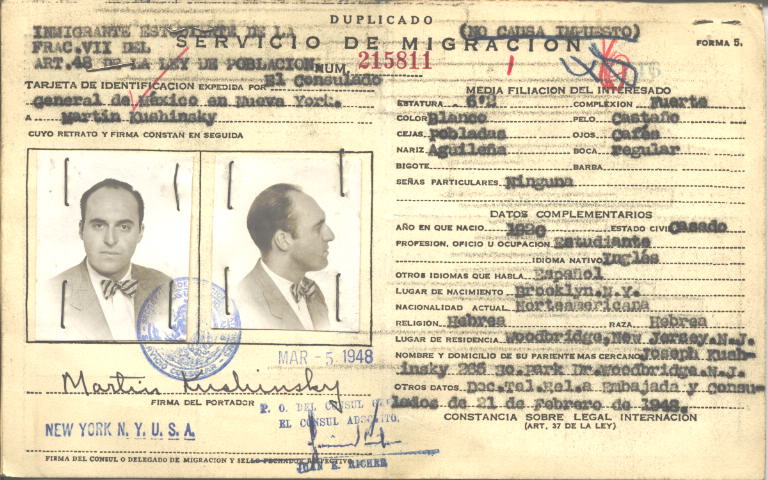 DUPLICADO
INMIGRANTE ESTUDIANTE DE LA
FRAC.VII DEL
ART.48 DE LA LEY DE POBLACION
SERVICIO DE MIGRACION
(NO CAUSA IMPUESTO)
FORMA 5.
NUM. 215811
TARJETA DE IDENTIFICACION EXPEDIDA POR El Consulado
General de México en Nueva York.
A Martin Kushinsky
CUYO RETRATO Y FIRMA CONSTAN EN SEGUIDA
MAR - 5 1948
Martin Kushinsky
FIRMA DEL PORTADOR
P. O. DEL CONSUL
EL CONSUL ADSCRITO,
NEW YORK N, Y, U. S. A.
FIRMA DEL CONSUL O DELEGADO DE MIGRACION Y SELLO FECHADOR RESPECTIVO
JUAN E. RICHER
MEDIA FILIACION DEL INTERESADO
ESTATURA 6'2 COMPLEXION Fuerte
COLOR Blanco PELO Castaño
CEJAS Pobladas OJOS Cafés
NARIZ Aguileña BOCA regular
BIGOTE BARBA
SEÑAS PARTICULARES Ninguna
DATOS COMPLEMENTARIOS
AÑO EN QUE NACIO 1920 ESTADO CIVIL Casado
PROFESION, OFICIO U OCUPACION Estudiante
IDIOMA NATIVO Inglés
OTROS IDIOMAS QUE HABLA Español
LUGAR DE NACIMIENTO Brooklyn.N.Y.
NACIONALIDAD ACTUAL Norteamericana
RELIGIÓN Hebrea RAZA Hebrea
LUGAR DE RESIDENCIA Woodbridge,New Jersey.N.J.
NOMBRE Y DOMICILIO DE SU PARIENTE MAS CERCANO Joseph Kush-
insky 266 So.Park Dr.Woodbridge.N.J.
OTROS DATOS Doc.Tel.Rel.a Embajada y Consu-
lados de 21 de Febrero de 1948.
CONSTANCIA SOBRE LEGAL INTERNACIÓN
(ART. 37 DE LA LEY)